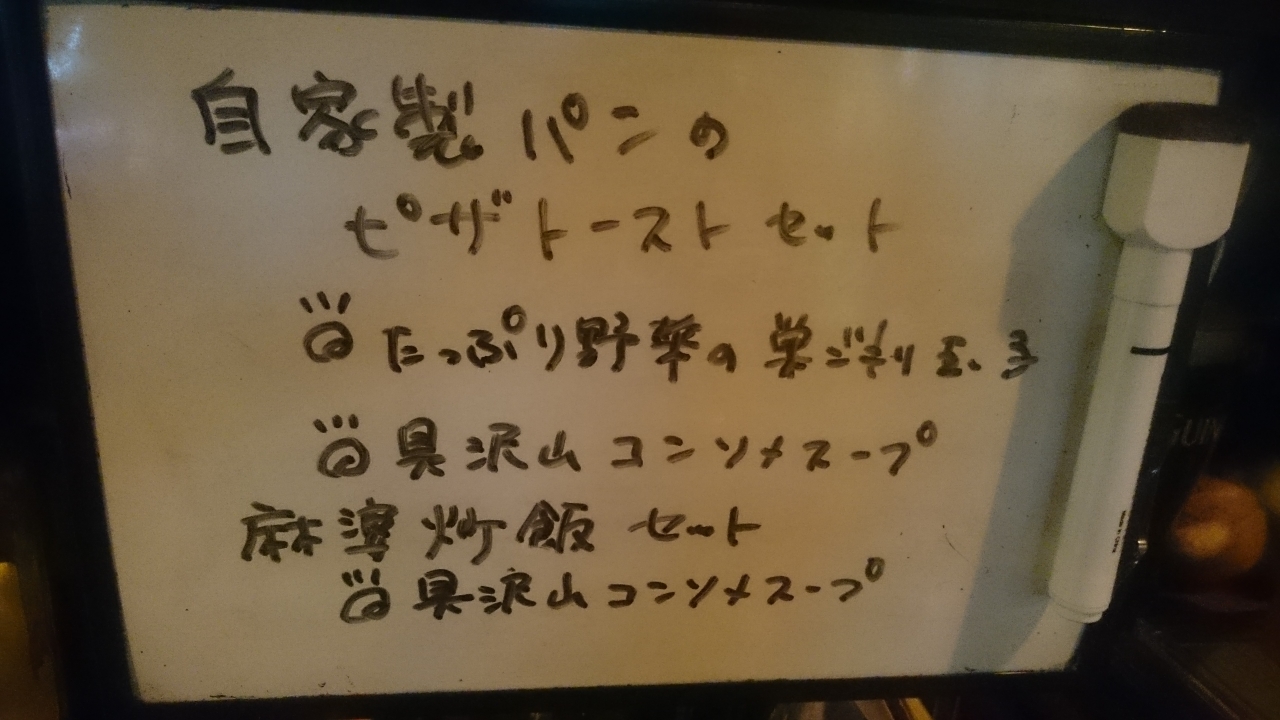 自家製パンの
ピザトーストセット
たっぷり野菜の巣ごもり玉子
具沢山コンソメスープ
麻婆炒飯セット
具沢山コンソメスープ